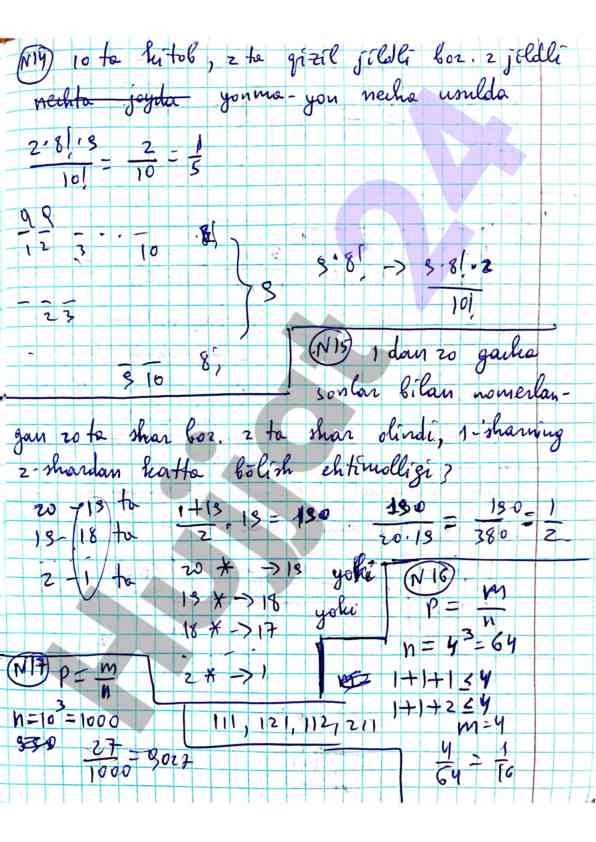 N14 10 ta kitob, 2 ta qizil jildli bor. 2 jildli
nechta joyda yonma-yon necha usulda
2·8!·9 / 10! = 2/10 = 1/5
9 9
1 2 3 ... 10 8!
2 3
9 10 8!
} 9
9·8! -> 9·8!·2 / 10!
N15 1 dan 20 gacha
sonlar bilan nomerlan-
gan 20 ta shar bor. 2 ta shar olindi, 1-sharning
2-shardan katta bölish ehtimolligi?
20 - 19 ta
19 - 18 ta
2 - 1 ta
1+19 / 2 · 19 = 190
190 / 20·19 = 190 / 380 = 1/2
20 * -> 19 yoki
19 * -> 18 yoki
18 * -> 17
2 * -> 1
N16
P = m/n
n = 4³ = 64
1+1+1 ≤ 4
1+1+2 ≤ 4
m = 4
111, 121, 112, 211
4/64 = 1/16
N17 P = m/n
n = 10³ = 1000
27/1000 = 0,027
Hujjat 24